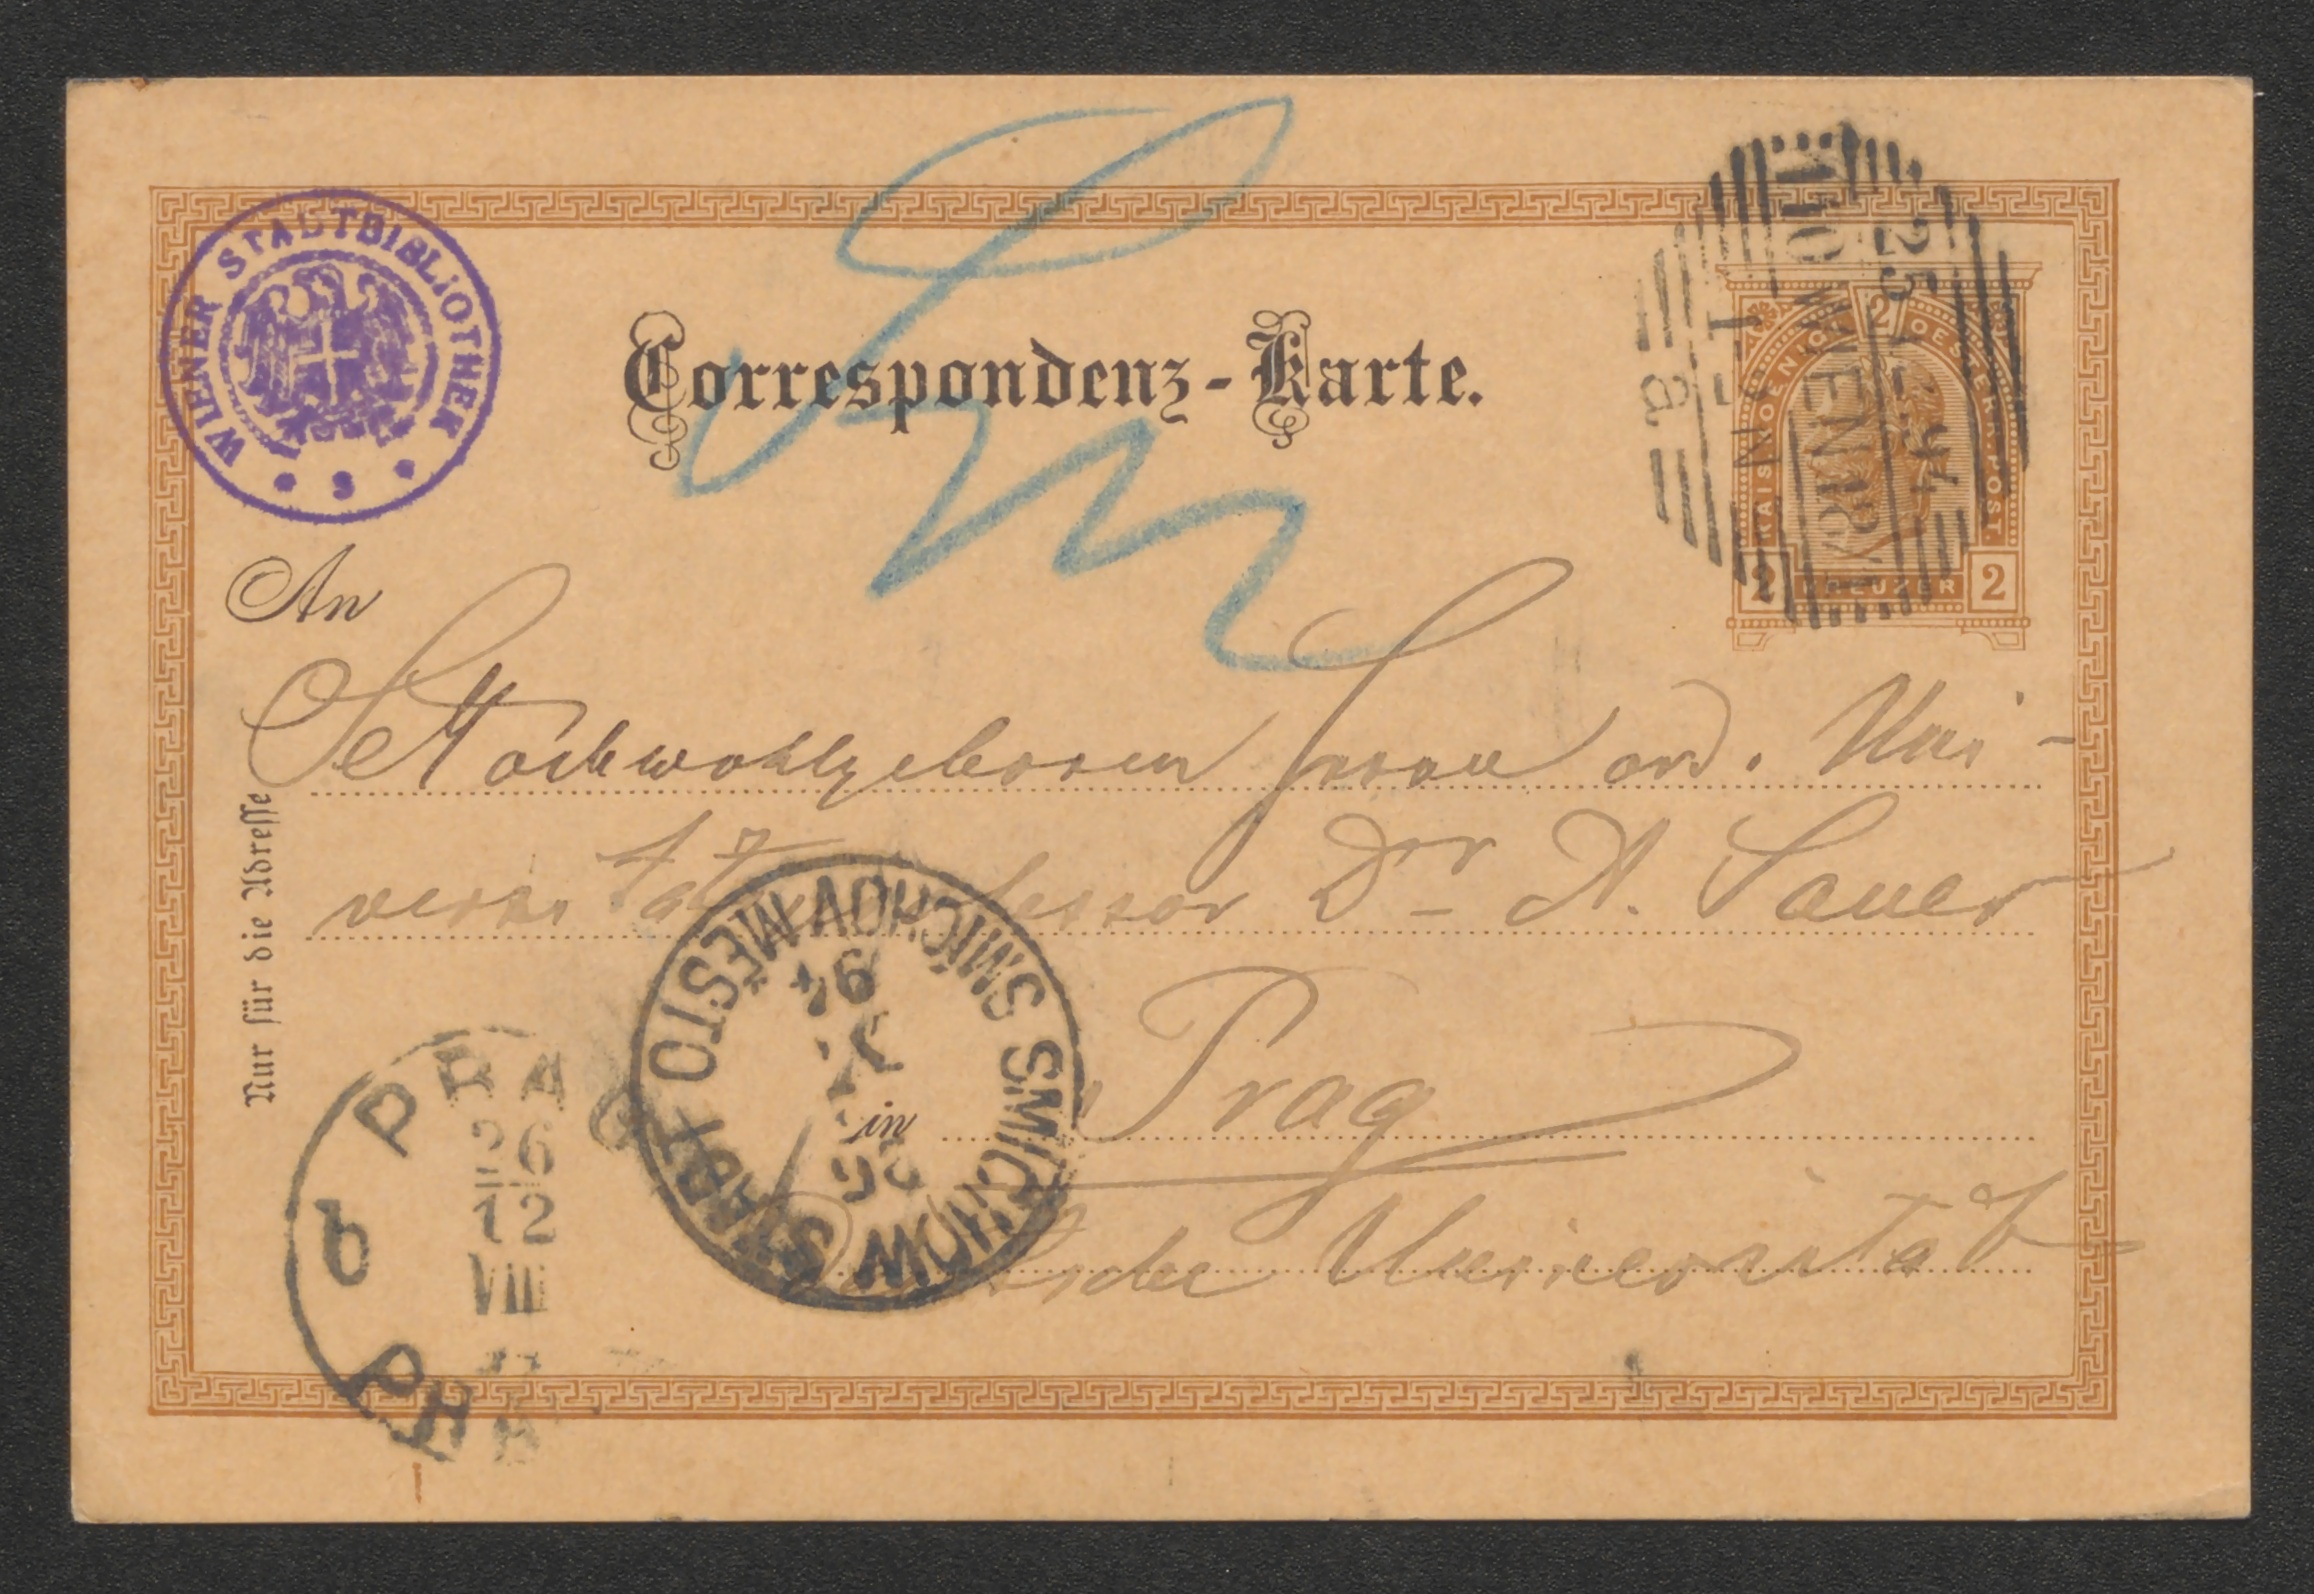 WIENER STADTBIBLIOTHEK
S
Correspondenz-Karte.
KAIS. KOEN. OESTERR. POST.
2
2 KREUZER 2
25 94
WIEN
1-2 N
a
An
Nur für die Adresse
Hochwohlgeboren Herrn ord. Uni-
versitätsprofessor Dr A. Sauer
SMICHOW STADT
SMÍCHOV MĚSTO
25
94
in Prag
Deutsche Universität
PRAG
26
12
VIII
b